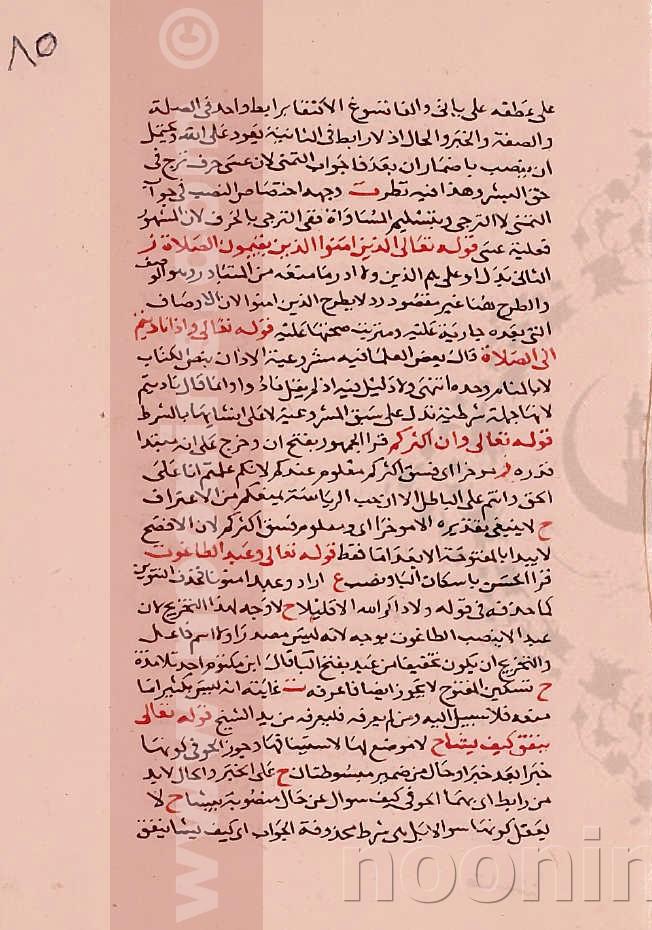 ٨٥
على عطفه على يأتي والفا تسوغ الاكتفا برابط واحد في الصلة
والصفة والخبر والحال اذ لا رابط في الثانية يعود على الله ويحتمل
ان ينصب باضمار ان بعد فا جواب التمني لان عسى حرف ترج في
حق البشر وهذا فيه نظر ت وجهه اختصاص النصب في جواب
التمني لا الترجي وبتسليم المساواة ففي الترجي بالحرف لان المشهور
فعلية عسى قوله تعالى الذين امنوا الذين يقيمون الصلاة ز
الثاني بدل او على هم الذين ولا ادري ما منعه من المتبادر وهو الوصف
والطرح هنا غير مقصود رد لا يطرح الذين امنوا لان الاوصاف
التي بعده جارية عليه ومترتبة صحتها عليه قوله تعالى واذا ناديتم
الى الصلاة قال بعض العلما فيه مشروعية الاذان بنص الكتاب
لا بالمنام وحده انتهى ولا دليل فيه اذ لم يقل نادوا وانما قال ناديتم
لانها جملة شرطية تدل على سبق المشروعية لا على انشائها بالشرط
قوله تعالى وان اكثركم قرا الجمهور بفتح ان وخرج على انه مبتدا
قدره ز موخرا اي فسق اكثركم معلوم عندكم لانكم علمتم انا على
الحق وانتم على الباطل الا ان حب الرياسة يمنعكم من الاعتراف
ح لا ينبغي تقديره الا موخرا اي ومعلوم فسق اكثركم لان الافصح
لا يبدا بالمفتوحة الا بعد اما فقط قوله تعالى وعبد الطاغوت
قرا الحسن باسكان الباء ونصب ع اراد وعبدا منونا فحذف التنوين
كما حذفه في قوله ولا ذاكر الله الا قليلا ح لا وجه لهذا التخريج لان
عبدا لا ينصب الطاغوت بوجه لانه ليس مصدرا ولا اسم فاعل
والتخريج ان يكون تخفيفا من عبد بفتح الباء قال ابن مكتوم احد تلامذة
ح تسكين المفتوح لا يجوز ايضا فاعرفه ت غايته انه ليس بكثير اما
منعه فلا سبيل اليه ومن لم يعرفه فليعرفه من بد الشيخ قوله تعالى
ينفق كيف يشاء ح لا موضع لها لاستينافها وجوز الحوفي كونها
خبرا بعد خبر او حال من ضمير مبسوطتان ح على الخبر والحال لا بد
من رابط اي بهما الحوفي كيف سوال عن حال منصوبة بيشا ح لا
يعقل كونها سوالا بل هي شرط محذوفة الجواب اي كيف يشا ينفق
©
noonin